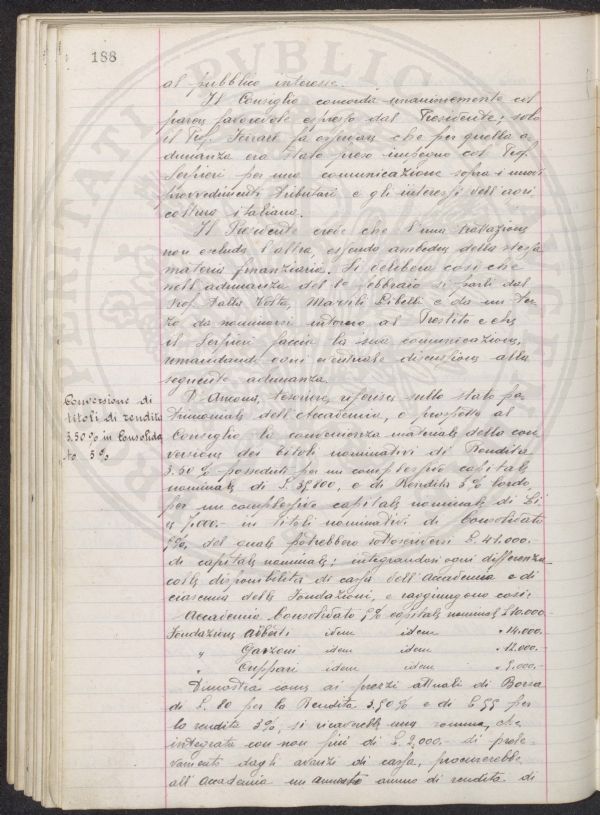 188
al pubblico interesse.
Il Consiglio concorda unanimemente col
parere favorevole espresso dal Presidente; solo
il Prof. Ferrari fa osservare che per quella a-
dunanza era stato preso impegno col Prof.
Serpieri per una comunicazione sopra i nuovi
provvedimenti tributari e gli interessi dell'agri
coltura italiana.
Il Presidente crede che l'una trattazione
non escluda l'altra, essendo ambedue della stessa
materia finanziaria. Si delibera così che
nell'adunanza del 1º febbraio si parli dal
Prof. Dalla Volta, Marsili Libelli e da un ter-
zo da nominarsi intorno al Prestito e che
il Serpieri faccia la sua comunicazione,
rimandando ogni eventuale discussione alla
seguente adunanza.
Conversione di
titoli di rendita
3.50% in Consolida
to 5%
D'Ancona, tesoriere, riferisce sullo stato pa-
trimoniale dell'Accademia, e prospetta al
Consiglio la convenienza materiale della con
versione dei titoli nominativi di Rendita
3.50% posseduti per un complessivo capitale
nominale di L. 39,800, e di Rendita 3% lordo,
per un complessivo capitale nominale di Li
re 1,000.- in titoli nominativi di Consolidato
5%, del quale potrebbero sottoscriversi L. 41.000.
di capitale nominale; integrandosi ogni differenza
colle disponibilità di cassa dell'Accademia e di
ciascuna delle Fondazioni, e raggiungono così:
Accademia Consolidato 5% capitale nominale L. 10.000.-
Fondazione Alberti idem idem " 14.000.-
" Garzoni idem idem " 12.000.-
" Cuppari idem idem " 5.000.-
Dimostra come ai prezzi attuali di Borsa
di L. 80 per la Rendita 3,50% e di L. 55 per
la rendita 3%, si ricaverebbe una somma, che
integrata con non più di L. 2,000.- di prele-
vamenti dagli avanzi di cassa, procurerebbe
all'Accademia un aumento annuo di rendita di